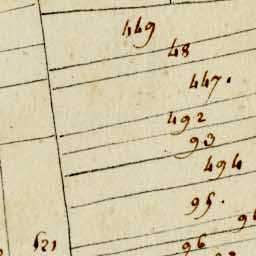 449
48
447.
492
93
494
95.
521
96